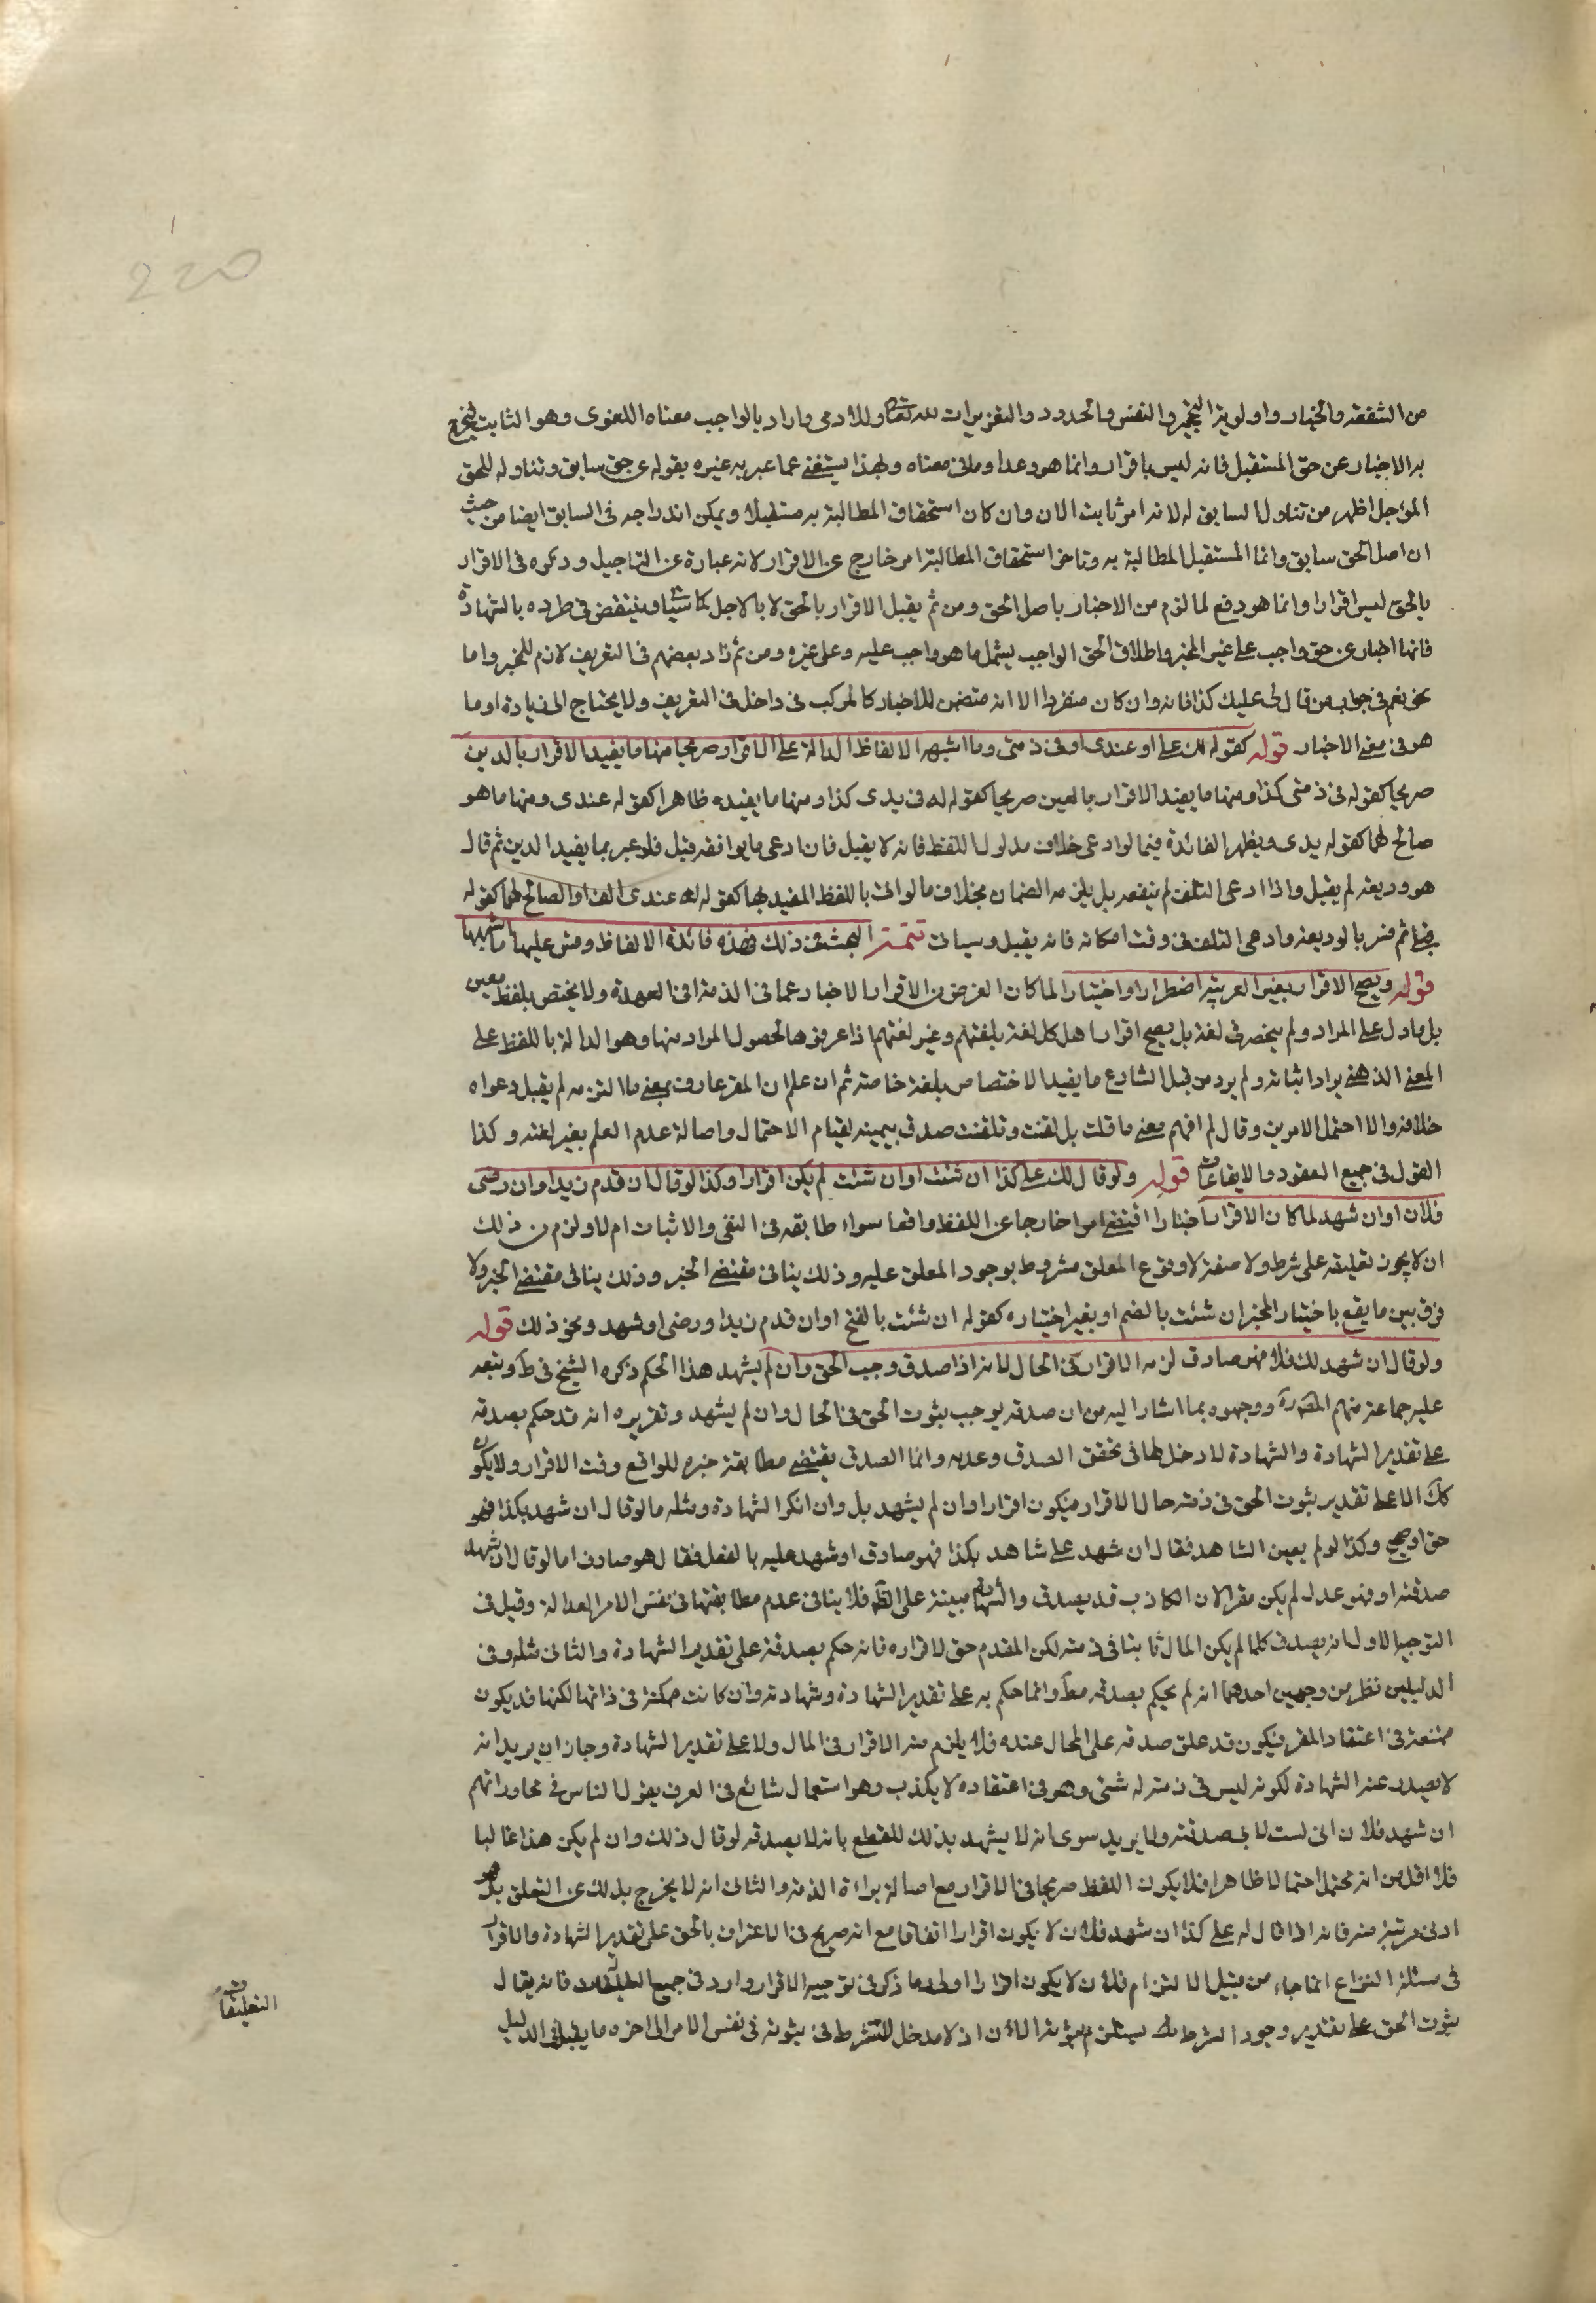 220
من الشفعة والخيار واولوية التحجير والنفس والحدود والتعزيرات لله تعالى وللادمى واراد بالواجب معناه اللغوى وهو الثابت ليخرج
به الاخبار عن حق المستقبل فانه ليس باقرار وانما هو وعد او ما فى معناه وبهذا يستغنى عما عبر به غيره بقوله عن حق سابق وتناوله للحق
المؤجل اظهر من تناول السابق له لانه امر ثابت الان وان كان استحقاق المطالبة به مستقبلا ويمكن اندراجه فى السابق ايضا من حيث
ان اصل الحق سابق وانما المستقبل المطالبة به وتاخر استحقاق المطالبة امر خارج عن الاقرار لانه عبارة عن التاجيل وذكره فى الاقرار
بالحق ليس اقرارا وانما هو دفع لما لزم من الاخبار باصل الحق ومن ثم يقبل الاقرار بالحق لا بالاجل كما سياتى وينتقض فى طرده بالشهادة
فانها اخبار عن حق واجب على غير المخبر واطلاق الحق الواجب يشمل ما هو واجب عليه وعلى غيره ومن ثم زاد بعضهم فى التعريف لازم للمخبر واما
نحو نعم فى جواب من قال لى عليك كذا فانه وان كان مفردا الا انه متضمن للاخبار كالمركب فى داخل فى التعريف ولا يحتاج الى زيادة او ما
هو فى معنى الاخبار قوله كقوله لك على او عندى او فى ذمتى وما اشبهه الالفاظ الدالة على الاقرار صريحا منها ما يفيد الاقرار بالدين
صريحا كقوله فى ذمتى كذا ومنها ما يفيد الاقرار بالعين صريحا كقوله له فى يدى كذا ومنها ما يفيده ظاهرا كقوله عندى ومنها ما هو
صالح لهما كقوله يدى ويظهر الفائدة فيما لو ادعى خلاف مدلول اللفظ فانه لا يقبل فان ادعى ما يوافقه قبل فلو عبر بما يفيد الدين ثم قال
هو وديعة لم يقبل واذا ادعى التلف لم ينفعه بل يلزمه الضمان بخلاف ما لو اتى باللفظ المفيد لها كقوله له عندى الف او الصالح لهما كقوله
ثم فسر بالوديعة وادعى التلف فى وقت امكانه فانه يقبل وسياتى تتمة البحث فى ذلك فهذه فائدة الالفاظ وقس عليها ما اشبهها
قوله ويصح الاقرار بغير العربية اضطرارا واختيارا لما كان الغرض من الاقرار الاخبار عما فى الذمة او فى العهدة ولا يختص بلفظ معين
بل ما دل على المراد ولم ينحصر فى لغة بل يصح اقرار اهل كل لغة بلغتهم وغير لغتهم اذا عرفوها لحصول المراد منها وهو الدالة باللفظ على
المعنى الذهنى يراد اثباته ولم يرد من قبل الشارع ما يفيد الاختصاص بلغة خاصة ثم ان علم ان المقر عارف بمعنى ما التزمه لم يقبل دعواه
خلافه والا احتمل الامرين وقال لم افهم معنى ما قلت بل لقنت وتلقنت صدق بيمينه لقيام الاحتمال واصالة عدم العلم بغير لغته وكذا
القول فى جميع العقود والايقاعات قوله ولو قال لك على كذا ان شئت او ان شئت لم يكن اقرارا وكذا لو قال ان قدم زيد او ان رضى
فلان او ان شهد لما كان الاقرار اخبارا اقتضى امرا خارجا عن اللفظ واقعا سواء طابقه فى النفى والاثبات ام لا ولزم من ذلك
ان لا يجوز تعليقه على شرط ولا صفة لا وقوع المعلق مشروط بوجود المعلق عليه وذلك ينافى مقتضى الخبر وذلك ينافى مقتضى الخبر ولا
فرق بين ما يقع باختيار المخبر ان شئت بالضم او بغير اختياره كقوله ان شئت بالفتح او ان قدم زيد او رضى او شهد ونحو ذلك قوله
ولو قال ان شهد لك فلان فهو صادق لزمه الاقرار فى الحال لانه اذا صدق وجب الحق وان لم يشهد هذا الحكم ذكره الشيخ فى ط وتبعه
عليه جماعة منهم المصرة ووجهوه بما اشار اليه من ان صدقه يوجب ثبوت الحق فى الحال وان لم يشهد وتقريره انه قد حكم بصدقه
على تقدير الشهادة والشهادة لا دخل لها فى تحقق الصدق وعدمه وانما الصدق يقتضى مطابقة خبره للواقع وقت الاقرار ولا يكون
كك الا على تقدير ثبوت الحق فى ذمته حال الاقرار فيكون اقرارا وان لم يشهد بل وان انكر الشهادة ومثله ما لو قال ان شهد بكذا فهو
حق او صحيح وكذا لو لم يعين الشاهد فقال ان شهد على شاهد بكذا فهو صادق او شهد عليه بالفعل فقال هو صادق اما لو قال ان شهد
صدقته او فهو عدل لم يكن مقرا لان الكاذب قد يصدق والشهادة مبينة على الظ فلا ينافى عدم مطابقتها فى نفس الامر العدالة وقيل فى
التوجيه الاول انه يصدق كلما لم يكن المال ثابتا فى ذمته لكن المقدم حق لاقراره فانه حكم بصدقه على تقدير الشهادة والثانى مثله وفى
الدليلين نظر من وجهين احدهما انه لم يحكم بصدقه مط وانما حكم به على تقدير الشهادة وشهادته وان كانت ممكنة فى ذاتها لكنها قد يكون
ممتنعة فى اعتقاد المقر فيكون قد علق صدقه على المحال عنده فلا يلزم منه الاقرار فى المال ولا على تقدير الشهادة وجاز ان يريد انه
لا يصدر عنه الشهادة لكونه ليس فى ذمته له شئ وهو فى اعتقاده لا يكذب وهو استعمال شائع فى العرف يقول الناس فى محاوراتهم
ان شهد فلان انى لست لابى صدقته ولا يريد سوى انه لا يشهد بذلك للقطع بانه لا يصدقه لو قال ذلك وان لم يكن هذا غالبا
فلا اقل من انه محتمل احتمالا ظاهرا فلا يكون اللفظ صريحا فى الاقرار مع اصالة براءة الذمة والثانى انه لا يخرج بذلك عن التعلق بل هو
ادنى مرتبة منه فانه اذا قال له على كذا ان شهد فلان لا يكون اقرارا اتفاقا مع انه صريح فى الاعتراف بالحق على تقدير الشهادة والاقرار
فى مسئلة النزاع انما جاء من قبيل الالتزام فلان لا يكون اقرارا اولى وما ذكر فى توجيه الاقرار وارد فى جميع التعليقات فانه يقال
ثبوت الحق على تقدير وجود الشرط يستلزم ثبوته الان اذ لا مدخل للشرط فى ثبوته فى نفس الامر الى اخره ما يقبل فى الدليل
التعليقات